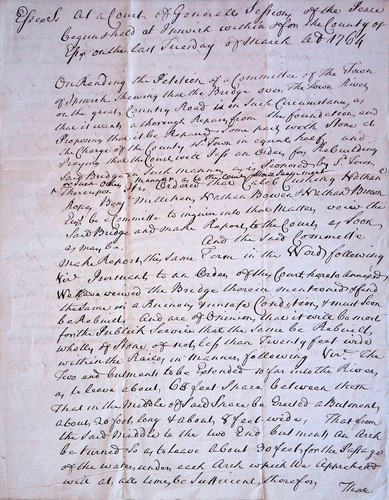 Essex Ss. At a Court of Generall Sessions of the Peace
begun & held at Ipswich within & for the County of
Essex on the last Tuesday of March AD 1764
On Reading the Petition of a Committee of the Town
of Ipswich Shewing that the Bridge over the Town River
on the great Country Road is in Such Circumstances, as
that it wants a thorough Repair from the foundation, and
Proposing that it be Repaired Some part with Stone, at
the Charge of the County & Town in equal and
Praying that the Court will Pass an Order for Rebuilding
Said Bridge in Such manner as is Proposed by sd. Town
or Such other manner as the
Thereupon Its Ordered that Caleb Cushing Nathanl.
Ropes Benj Mulliken, Nathan Bowen & Nathan Brown
Esqrs. be a Committee to inquire into that Matter, view the
Said Bridge and make Report to the Court, as Soon
as may be. And the Said Committee
make Report, the Same Form in the Word following
Vizt. Pursuant to an Order of the Court hereto annexed
We have viewed the Bridge therein mentioned & find
the Same in a Ruinous & unsafe Condition, & must Soon
be Rebuilt, And are of Opinion that it will be most
for the Publick Service that the Same be Rebuilt,
wholly of Stone of not less than Twenty feet wide
within the Railes, in manner following Vizt. The
Two end butments to be Extended So far into the River,
as to leave about 68 feet Space between them
That in the Middle of Said Space be Erected a Butment,
about 20 foot long & about 8 feet wide, That from
the Said Middle to the Two End butments an Arch
be turned So as to leave about 30 feet, for the Passage
of the water, under each Arch which We Apprehend
will at all times, be Sufficient, therefor, That